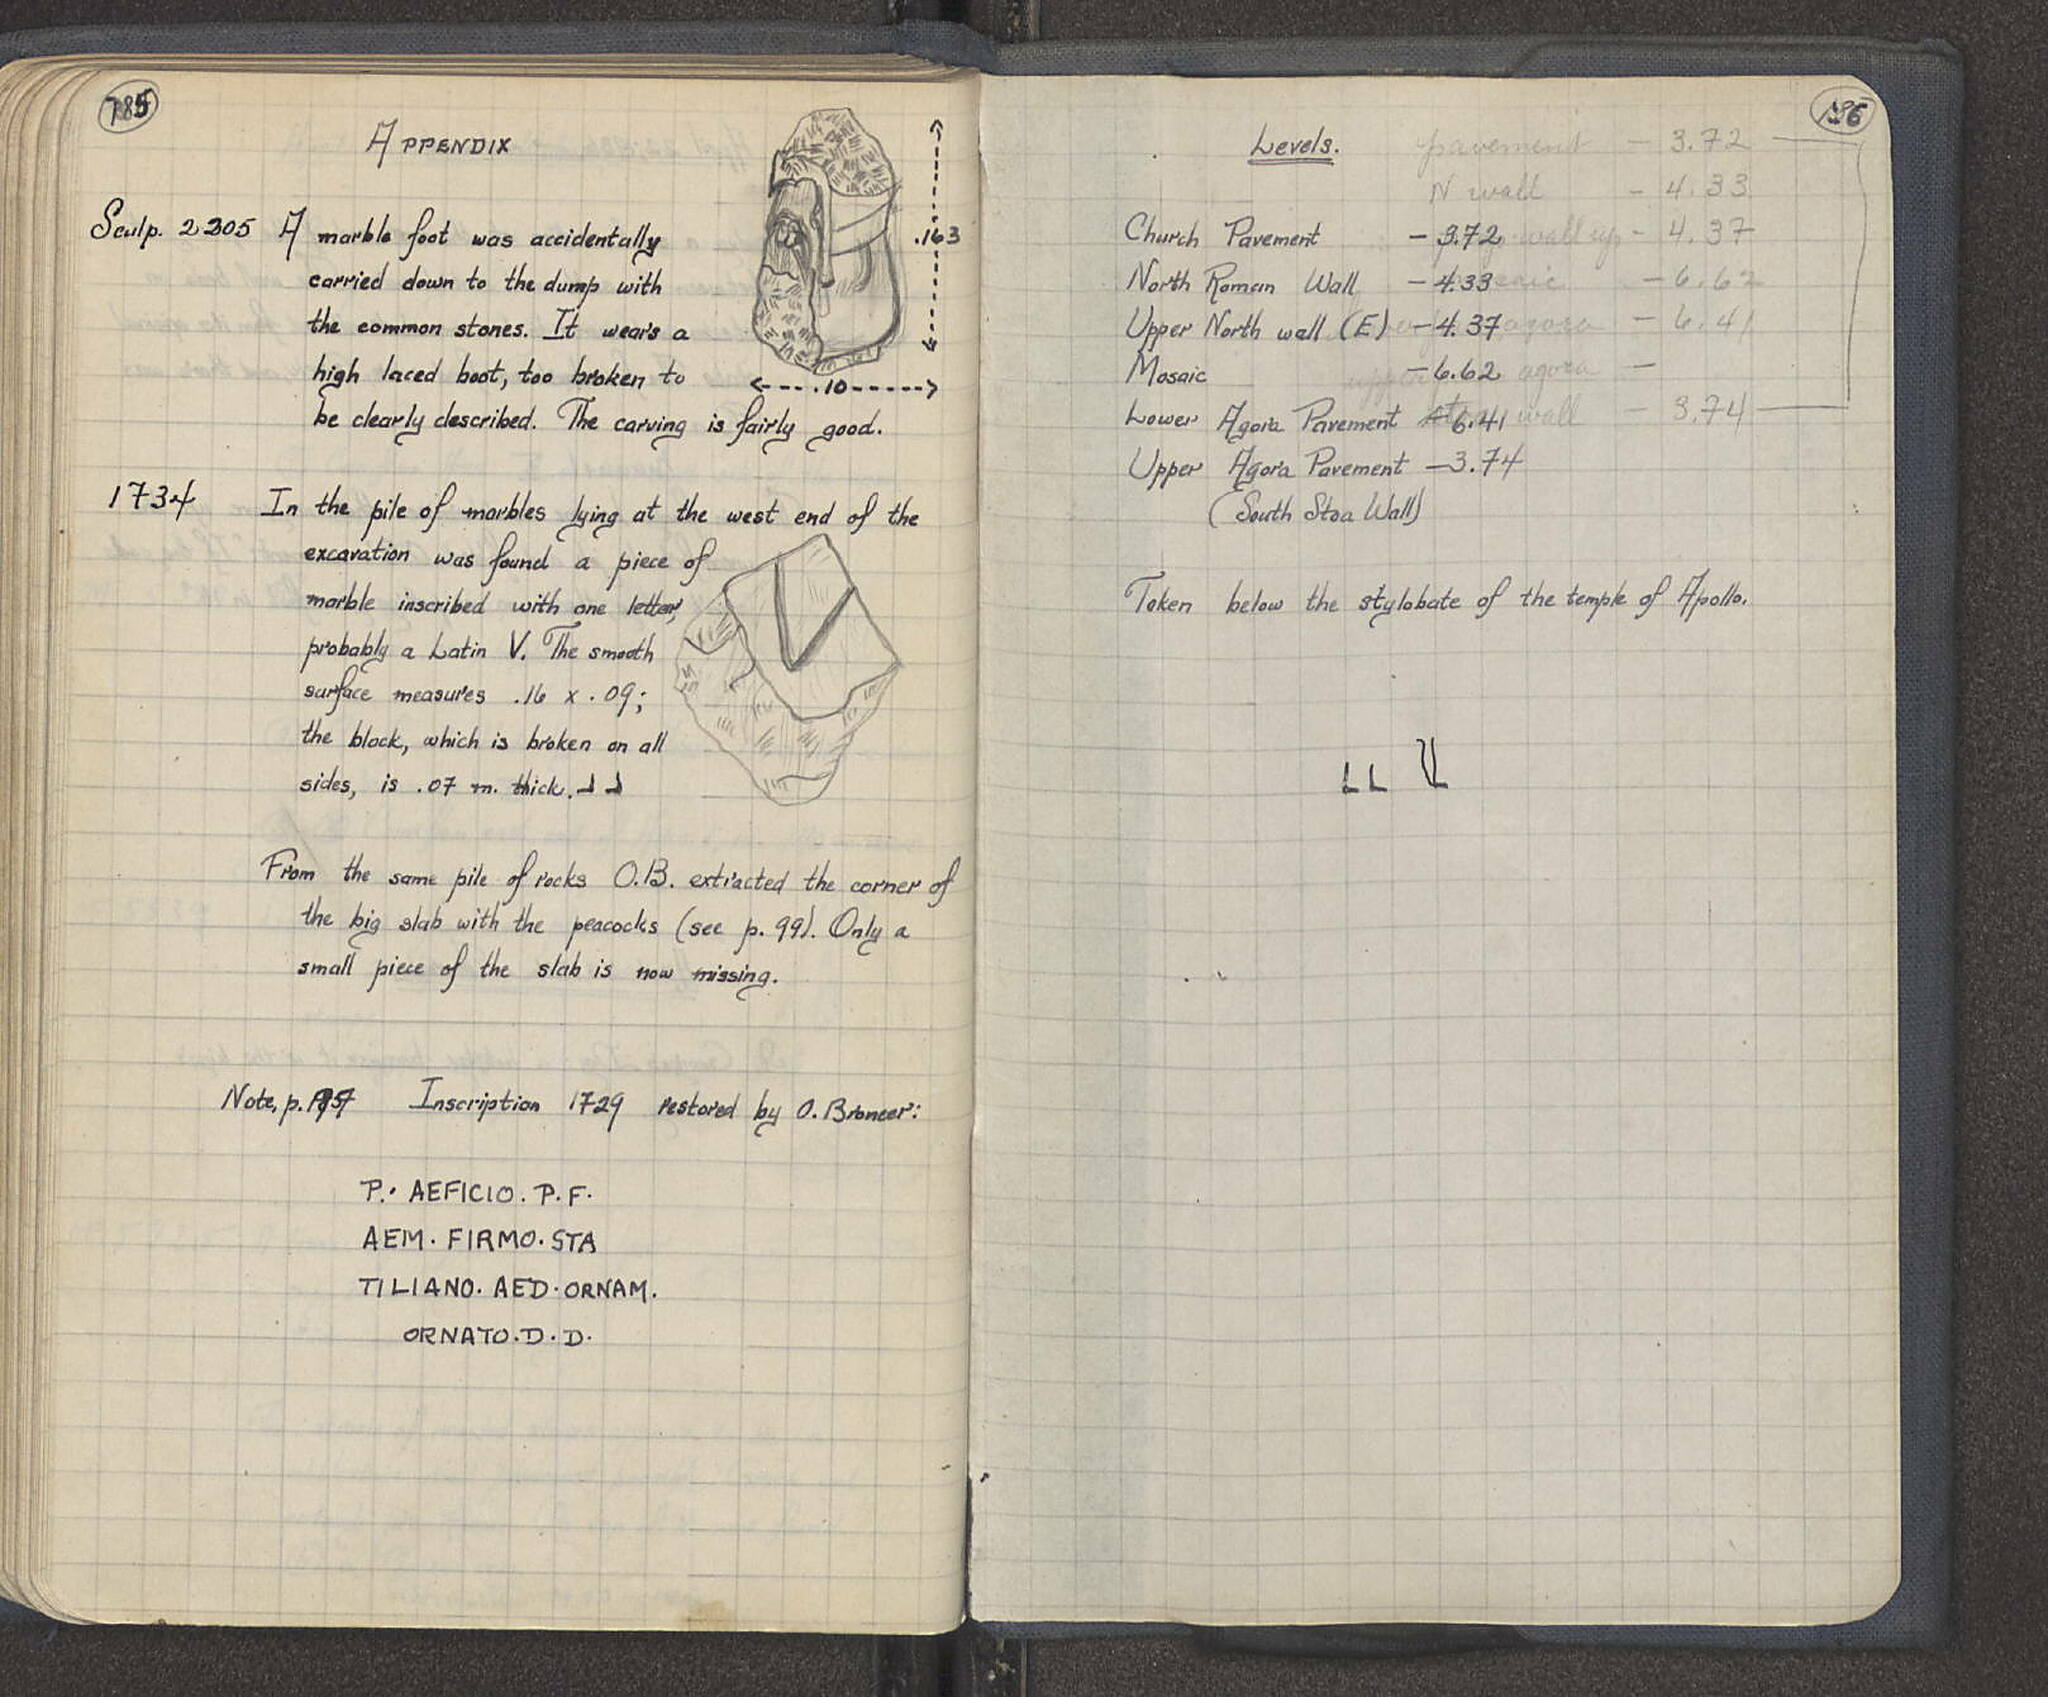 APPENDIX
Sculp. 2305 A marble foot was accidentally
carried down to the dump with
the common stones. It wears a
high laced boot, too broken to
be clearly described. The carving is fairly good.
.163
.10
1734 In the pile of marbles lying at the west end of the
excavation was found a piece of
marble inscribed with one letter,
probably a Latin V. The smooth
surface measures .16 x .09;
the block, which is broken on all
sides, is .07 m. thick.
From the same pile of rocks O.B. extracted the corner of
the big slab with the peacocks (see p. 99). Only a
small piece of the slab is now missing.
Note, p. Inscription 1729 restored by O. Broneer:
P. AEFICIO. P. F.
AEM. FIRMO. STA
TILIANO. AED. ORNAM.
ORNATO. D. D.
186
Levels.
pavement - 3.72
N wall - 4.33
wall up - 4.37
- 6.62
agora - 6.41
upper agora -
wall - 3.74
Church Pavement - 3.72
North Roman Wall - 4.33
Upper North wall (E) - 4.37
Mosaic - 6.62
Lower Agora Pavement - 6.41
Upper Agora Pavement - 3.74
(South Stoa Wall)
Taken below the stylobate of the temple of Apollo.